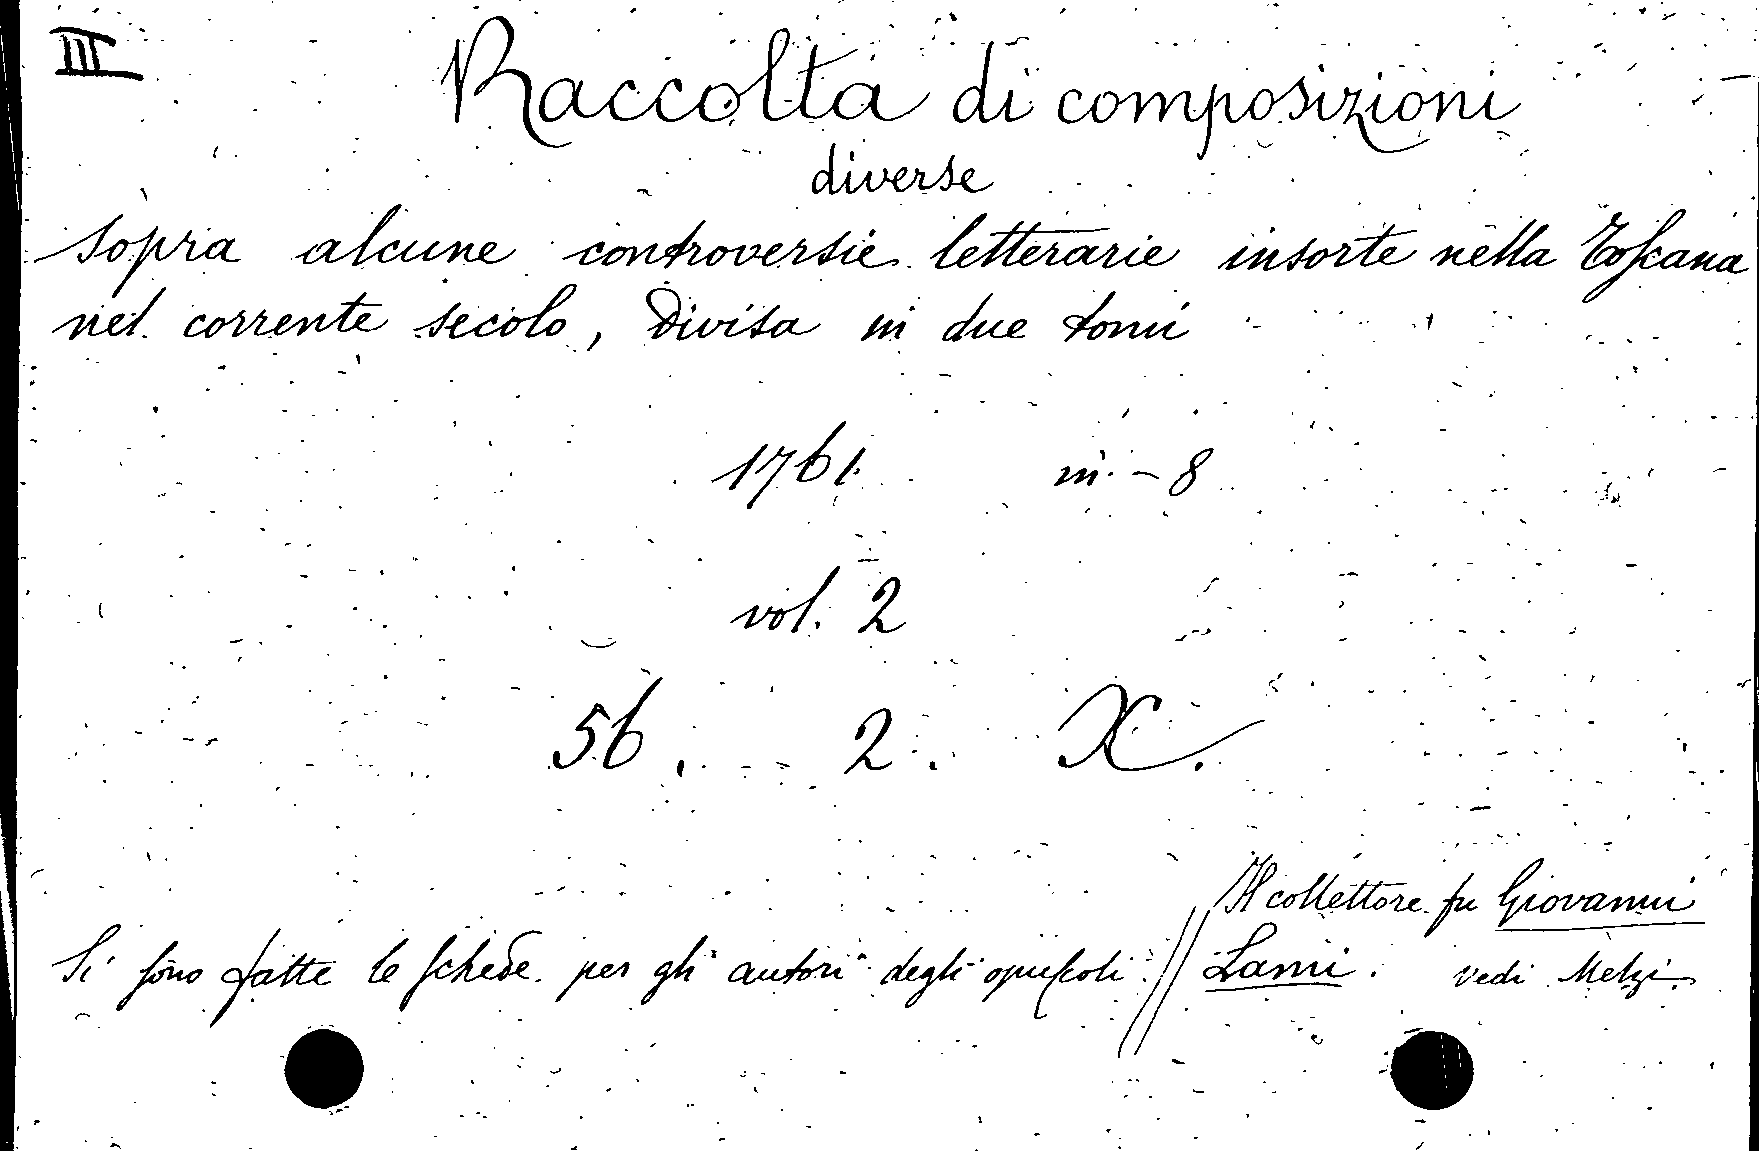 III
Raccolta di composizioni
diverse
sopra alcune controversie letterarie insorte nella Toscana
nel corrente secolo, Divisa in due tomi
1761. in - 8
vol. 2
56. 2. X.
Il collettore fu Giovanni
Si sono fatte le schede per gli autori degli opuscoli // Lami. vedi Melzi.